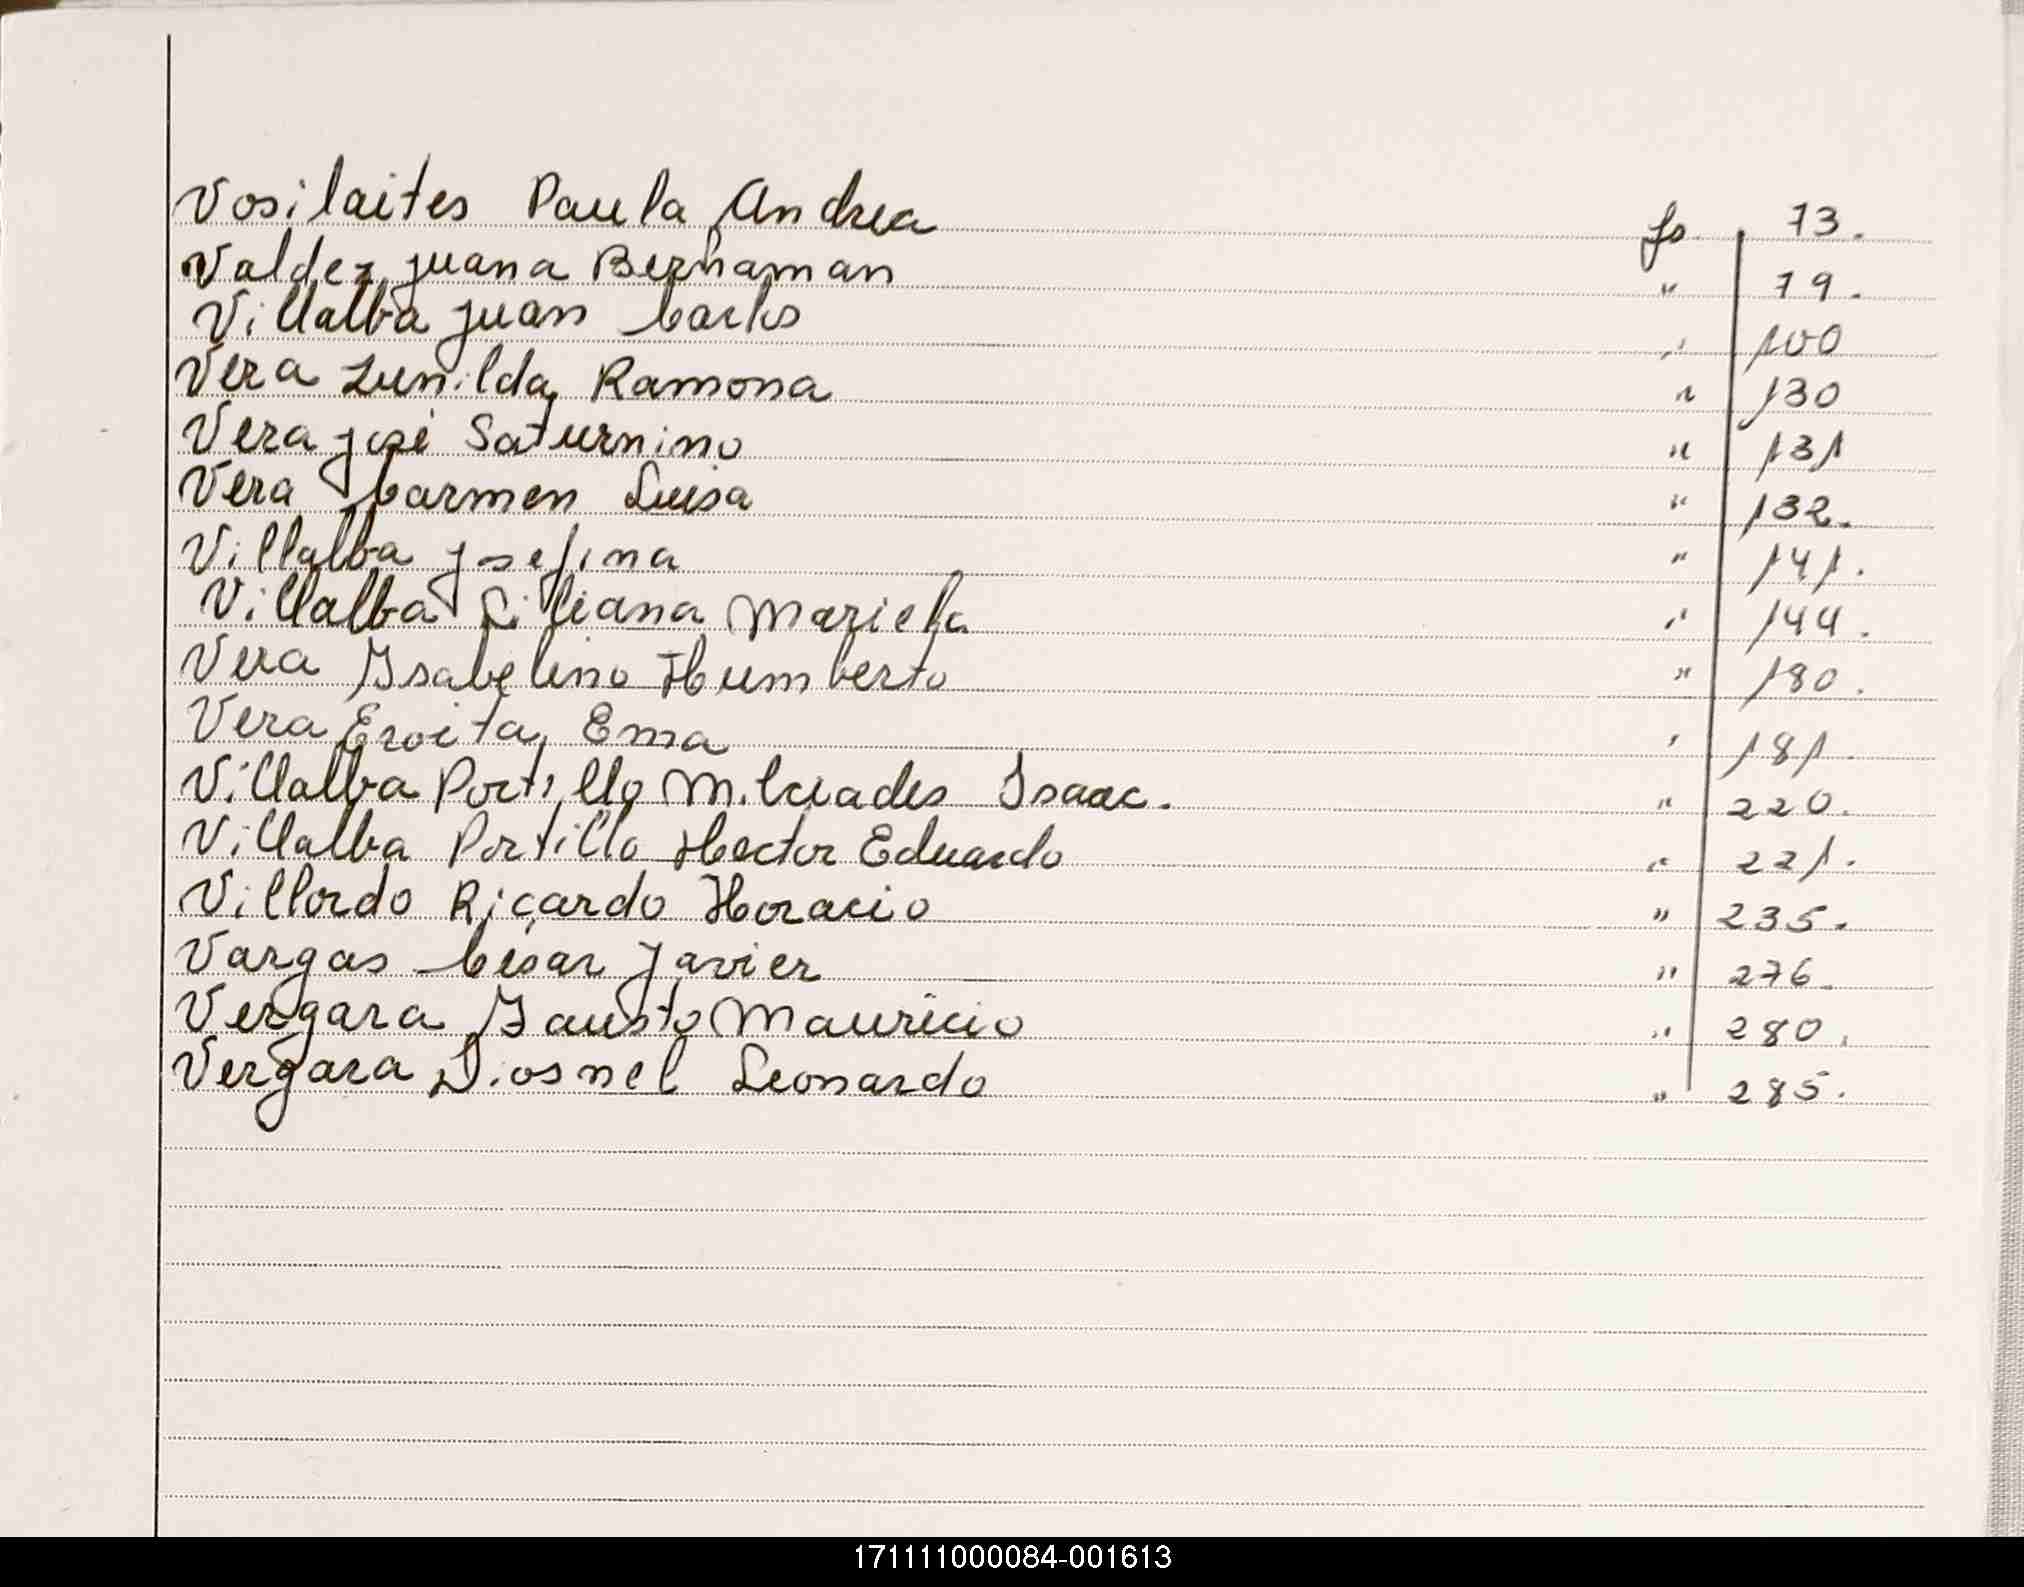 Vosilaites Paula Andrea fs. 73.
Valdez Juana Bernaman " 79.
Villalba Juan Carlos " 100
Vera Zunilda Ramona " 130
Vera José Saturnino " 131
Vera Carmen Luisa " 132.
Villalba Josefina " 141.
Villalba Liliana Mariela " 144.
Vera Isabelino Humberto " 180.
Vera Evoita Ema " 181.
Villalba Portillo Milciades Isaac. " 220.
Villalba Portillo Hector Eduardo " 221.
Villordo Ricardo Horacio " 235.
Vargas César Javier " 276.
Vergara Fausto Mauricio " 280.
Vergara Diosnel Leonardo " 285.
171111000084-001613